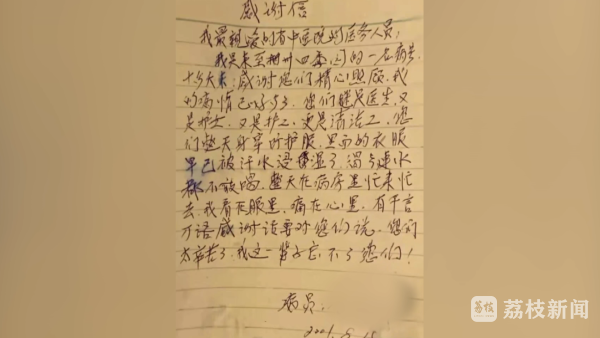 感谢信
我最敬爱的省中医院的医务人员:
我是来至柳州四季园的一名病号,
十多天来,感谢您们精心照顾,我
的病情已好多了,您们既是医生,又
是护士,又是护工,更是清洁工,您
们整天身穿防护服,里面的衣服
早已被汗水浸湿了,渴了连水
都不敢喝,整天在病房里忙来忙
去,我看在眼里,痛在心里,有千言
万语感谢话要对您们说,您们
太辛苦了,我这一辈子忘不了您们!
病员:
2021.8.15
荔枝
荔枝新闻